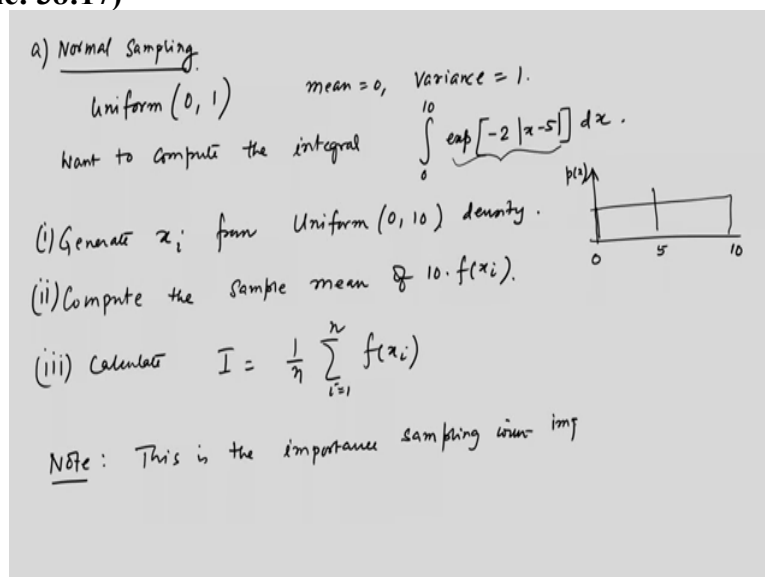 a) Normal Sampling.
Uniform (0, 1) mean = 0, Variance = 1.
Want to compute the integral ∫₀¹⁰ exp[-2 |x-5|] dx.
p(x)
0 5 10
(i) Generate xᵢ from Uniform (0, 10) density.
(ii) Compute the sample mean of 10. f(xᵢ).
(iii) Calculate I = 1/n ∑ᵢ₌₁ⁿ f(xᵢ)
Note: This is the importance sampling